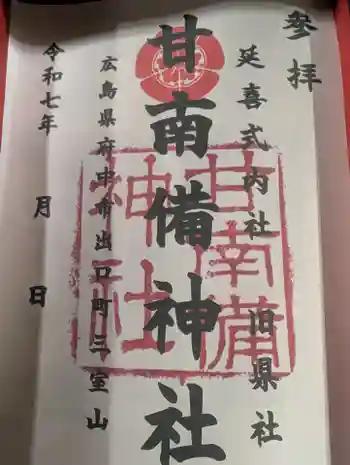 参拝
延喜式内社 旧県社
甘南備神社
広島県府中市出口町三室山
令和七年 月 日
甘南備
神社